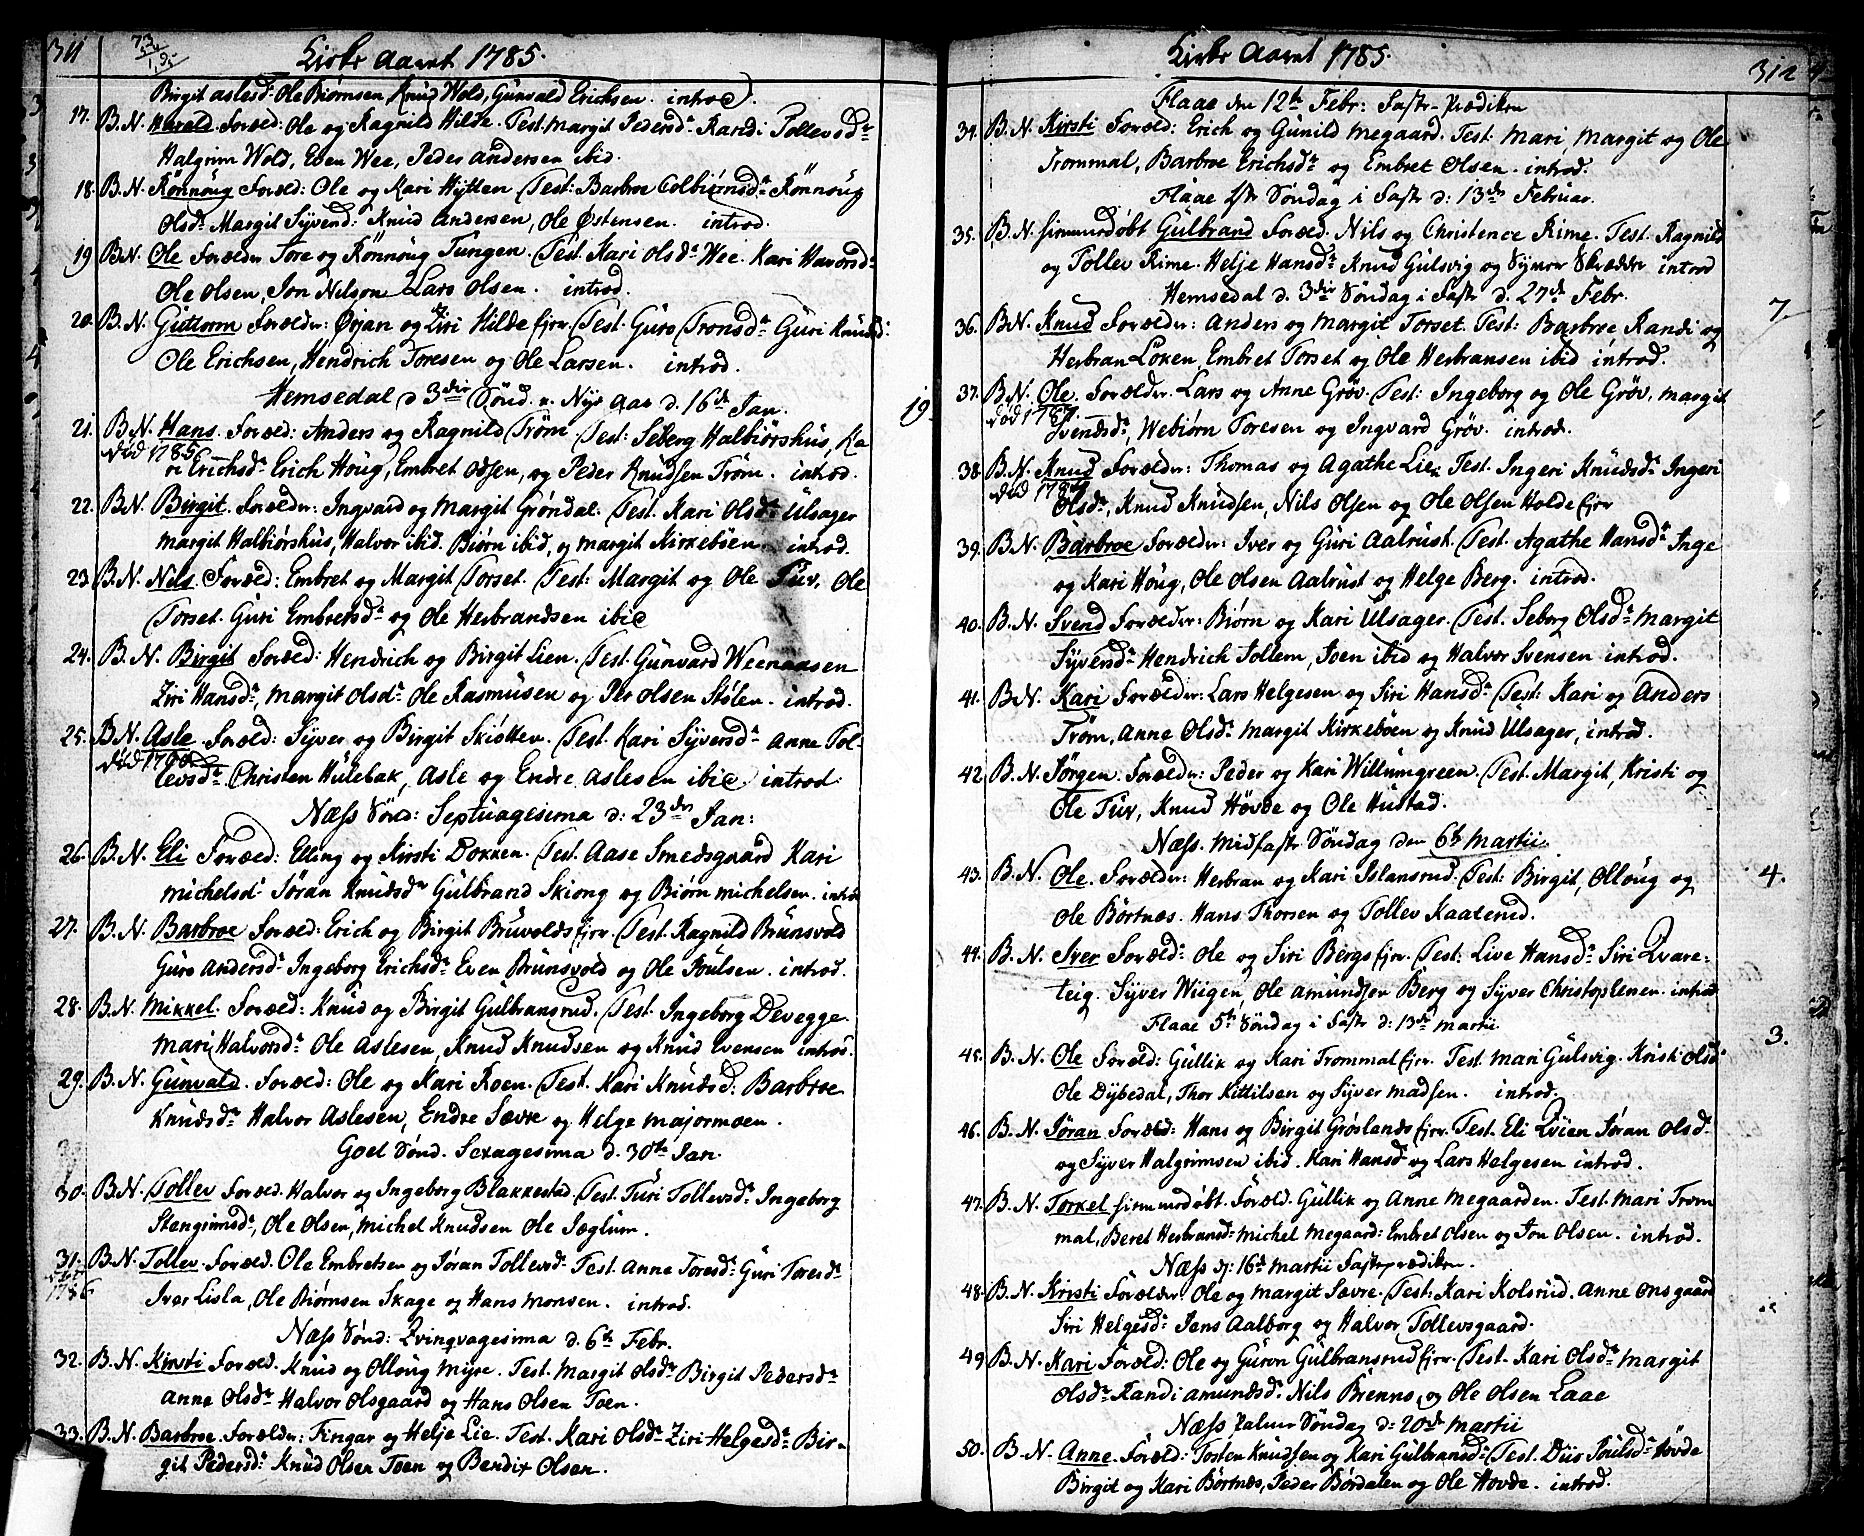 311
Kirke Aaret 1785.
Birgit aslesd: Ole Biørnsen, Knud Wold, Gunvald Erichsen. introd.
17. B.N. Harald. Foræld: Ole og Ragnild Hilde. Test. Margit Pedersd: Randi Tollevsd:
Halgrim Wold, Even Wee, Peder Andersen ibid.
18. B.N. Rönnoug Foræld: Ole og Kari Hytten Test: Barbroe Colbiørnsd: Rönnoug
Olsd: Margit Syversd: Knud Andersen, Ole Østensen. introd.
19 B.N. Ole Forældr Tore og Rönnoug Tungen. Test. Kari Olsd: Wee. Kari Havorsd:
Ole Olsen, Jon Nilsen Lars Olsen. introd.
20. B.N. Guttorm Forældr: Ørjan og Ziri Hilde ejer. Test. Guro Tronsd: Guri Knudsd:
Ole Erichsen, Hendrich Toresen og Ole Larsen. introd.
Hemsedal d 3die Sönd. n. Nyt Aar d. 16de Jan.
19
21. B.N. Hans. Foræld: Anders og Ragnild Tröm Test: Seberg Halbiørshus, Ka
död 1785
ri Erichsd: Erich Houg, Embret Odsen, og Peder Knudsen Tröm. introd.
22. B.N. Birgit. Forældr: Ingvard og Margit Gröndal. Test. Kari Olsd: Ulsager
Margit Halbiørshus, Halvor ibid. Biørn ibid, og Margit Kirkeböen. introd.
23. B.N. Nils. Foræld: Embret og Margit Torset. Test: Margit og Ole Tuv, Ole
Torset. Guri Embretsd: og Ole Herbrandsen ibid
24. B.N. Birgit Foræld: Hendrich og Birgit Lien. Test. Gunvard Weenaasen
Ziri Hansd:, Margit Olsd: Ole Rasmusen og Per Olsen Stölen. introd.
25. B.N. Asle. Foræld: Syver og Birgit Skiötten. Test. Kari Syversd: Anne Tol-
levsd: Christen Hulebak, Asle og Endre Aslesen ibid. introd
Næss Sönd: Septuagesima d: 23de Jan:
26. B.N. Eli Foræld: Elling og Kirsti Dokken. Test. Aase Smedsgaard Kari
Michelsd: Jöran Knudsd: Gulbrand Skiong og Biørn Michelsen. introd
27. B.N. Barbroe Foræld: Erich og Birgit Bruvolds ejer. Test. Ragnild Brunsvold
Guro Andersd: Ingeborg Erichsd: Even Brunsvold og Ole Poulsen. introd.
28. B.N. Mikkel. Foræld: Knud og Birgit Gulbransrud. Test. Ingeborg Devegge.
Mari Halvorsd: Ole Aslesen, Knud Knudsen og Knud Evensen introd.
29. B.N. Gunvald. Foræld: Ole og Kari Roen. Test. Kari Knudsd: Barbroe
Knudsd: Halvor Aslesen, Endre Sævre og Helge Majormoen.
Goel Sönd. Sexagesima d. 30te Jan.
30. B.N. Tollev Foræld. Halvor og Ingeborg Blakkestad. Test. Turi Tollevsd: Ingeborg
Stengrimsd:, Ole Olsen, Michel Knudsen Ole Sæglum.
31. B.N. Tollev. Foræld. Ole Embretsen og Jöran Tollevsd: Test. Anne Toresd: Guri Toresd:
1786
Iver Lisla, Ole Biørnsen Skage og Hans Monsen. introd.
Næss Sönd: Qvinqvagesima d. 6te Febr.
32. B.N. Kirsti Foræld. Knud og Olloug Myre. Test. Margit Olsd: Birgit Pedersd:
Anne Olsd: Halvor Olsgaard og Hans Olsen Toen.
33. B.N. Barbroe. Forældr: Fingar og Helje Lie. Test. Kari Olsd: Ziri Helgesd: Bir-
git Pedersd: Knud Olsen Toen og Bendix Olsen.
312
Kirke Aaret 1785.
Flaae den 12te Febr: Faste-Prædiken
34. B.N. Kirsti Foræld: Erich og Gunild Megaard. Test. Mari, Margit og Ole
Trommal, Barbroe Erichsd: og Embret Olsen. introd.
Flaae 1ste Söndag i Faste d: 13de Februar.
35. B.N. hiemmedöbt Gulbrand Foræld. Nils og Christence Rime. Test. Ragnild
og Tollev Rime. Helje Hansd: Knud Gulsvig og Syver Skrædder introd
Hemsedal d. 3die Söndag i Faste d. 27de Febr.
7
36. B.N. Knud Forældr: Anders og Margit Torset. Test: Barbroe Randi og
Herbran Loken, Embret Torset og Ole Herbransen ibid introd.
37. B.N. Ole. Forældr. Lars og Anne Gröv. Test: Ingeborg og Ole Gröv, Margit
död 1787.
Svendsd:, Webiørn Toresen og Ingvard Gröv. introd.
38. B.N. Knud Forældr: Thomas og Agathe Lie, Test. Ingeri Knudsd: Ingeri
Olsd:, Knud Knudsen, Nils Olsen og Ole Olsen Holde ejer
39. B.N. Barbroe Forældr: Iver og Guri Aalrust. Test. Agathe Hansd: Inge
og Kari Houg, Ole Olsen Aalrust og Helge Berg. introd.
40. B.N. Svend Forældr: Biørn og Kari Ulsager. Test. Seborg Olsd: Margit
Syversd: Hendrich Jollem, Joen ibid og Halvor Svensen introd.
41. B.N. Kari Forældr: Lars Helgesen og Siri Hansd: Test: Kari og Anders
Tröm, Anne Olsd: Margit Kirkeböen og Knud Ulsager, introd.
42. B.N. Jörgen. Forældr: Peder og Kari Willumgreen. Test. Margit, Kristi og
Ole Tuv, Knud Hövde og Ole Hustad.
Næss. Midfaste Söndag den 6te Martii.
4.
43. B.N. Ole. Forældr: Herbran og Kari Islansrud. Test: Birgit, Olloug og
Ole Börtnæs. Hans Thorsen og Tollev Kaaterud.
44. B.N. Iver Foræld: Ole og Siri Bergs ejer. Test: Live Hansd: Siri Qvare-
teig. Syver Wiigen, Ole Amundsen Berg og Syver Christophersen. introd
Flaae 5te Söndag i Faste d: 13de Martii
3.
45. B.N. Ole Foræld: Gullik og Kari Trommal ejer. Test. Mari Gulsvig. Kristi Olsd:
Ole Dybedal, Thor Kittilsen og Syver Madsen. introd.
46. B.N. Jöran Foræld: Hans og Birgit Gröslands ejer. Test. Eli Qvien Jöran Olsd:
og Syver Halgrimsen ibid. Kari Hansd: og Lars Helgesen introd.
47. B.N. Torkel hiemmedöbt. Foræld. Gullik og Anne Megaarden. Test. Mari Trom
mal, Beret Herbransd: Michel Megaard: Embret Olsen og Jon Olsen. introd.
Næss d: 16de Martii Fasteprædiken.
48. B.N. Kristi Forældr. Ole og Margit Sævre. Test: Kari Kolsrud. Anne Onsgaard
Siri Helgesd: Jens Aalborg og Halvor Tollevsgaard.
49 B.N. Kari Foræld: Ole og Guron Gulbransrud ejer. Test. Kari Olsd: Margit
Olsd: Randi Amundsd: Nils Brenno, og Ole Olsen Laae
Næss Palme Söndag d: 20de Martii
50. B.N. Anne. Foræld: Tosten Knudsen og Kari Gulbransd: Test. Diis Poulsd: Hövde
Birgit og Kari Börtnæs, Peder Bördalen og Ole Hovde. introd.